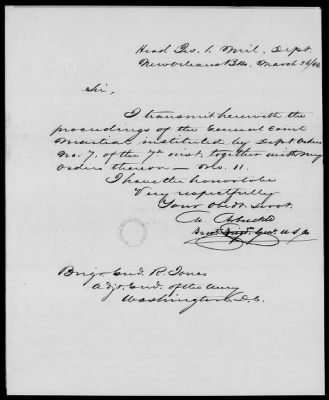 Head Qrs. 1. Mil. Dept.
New Orleans Bks, March 26/44
Sir,
I transmit herewith the
proceedings of the General Court
Martial instituted by Dept Orders
No. 7, of the 7th inst, together with my
orders thereon — No. 11.
I have the honor to be
Very respectfully
Your Obdt. Servt.
M. Arbuckle
Brevt Brigr. Genl. U S A
Brigr Genl. R. Jones
Adjt. Genl. of the Army
Washington, D.C.